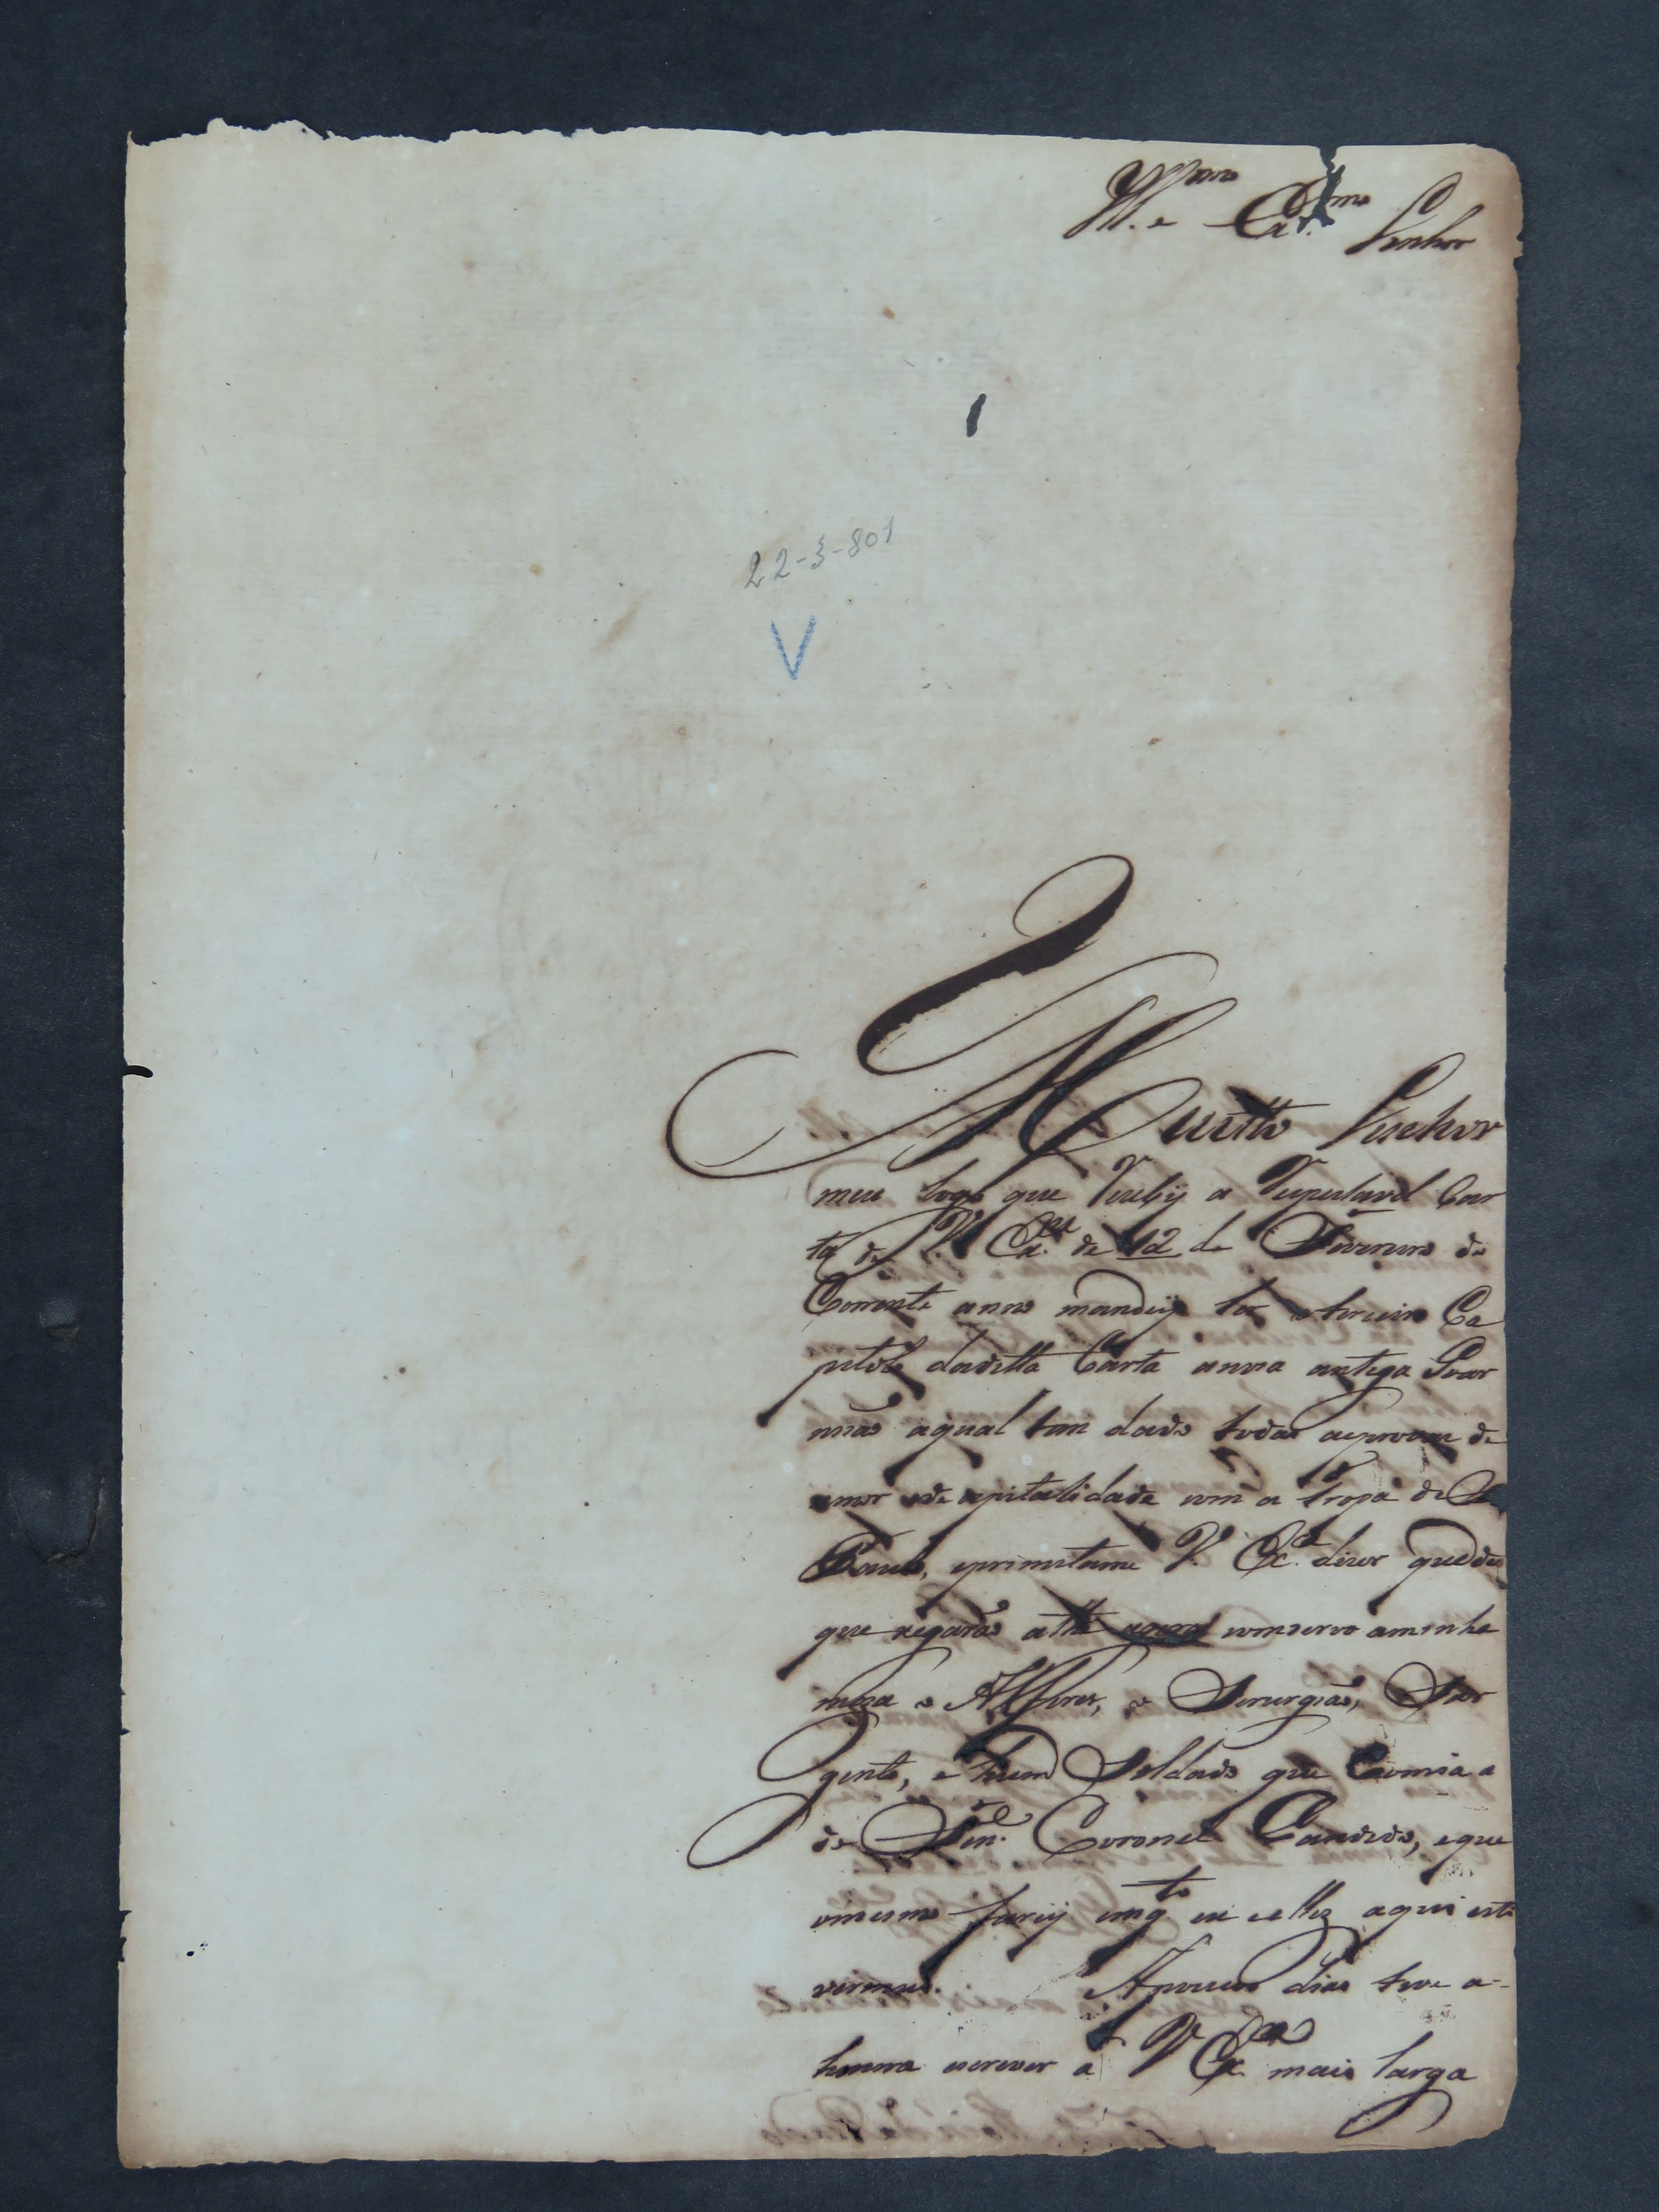 Ill.mo e Ex.mo Senhor
22-3-801
V
Muitto Senhor
meu logo que Recebij a Respeitavel Car
ta de V. Ex.cia de 12 de Fevereiro do
Corrente anno mandeij ler o terceiro Ca
pitolo daditta Carta anova antiga Guar
nição aqual tem dado todas asprovas de
amor ede ospitalidade com a tropa de S.
Paulo, epremitame V. Ex.a dizer quedes
que xegarão athe agora comservo aminha
meza o Alferes, o Serurgião, Sar
gento, e hum Soldado que Comia a
do Ten.e Coronel Candido, eque
omesmo fareij emq.to eu eelles aqui esti
vermos. A poucos dias tive a-
honra escrever a V Ex.cia mais larga